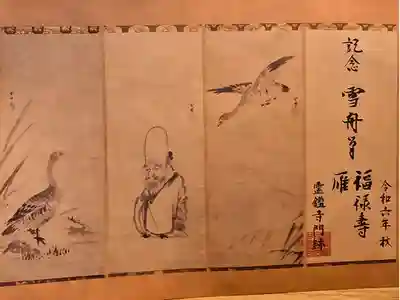 記念
雪舟筆
福禄寿
雁
令和六年 秋
霊鑑寺門跡